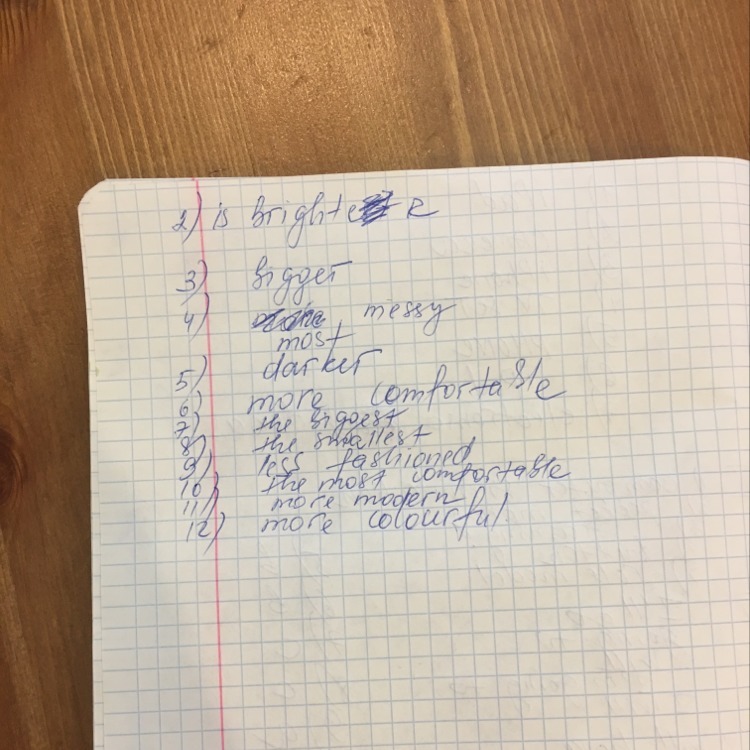 2) is brighter
3) bigger
4) messy
most
5) darker
6) more comfortable
7) the biggest
8) the smallest
9) less fashioned
10) the most comfortable
11) more modern
12) more colourful